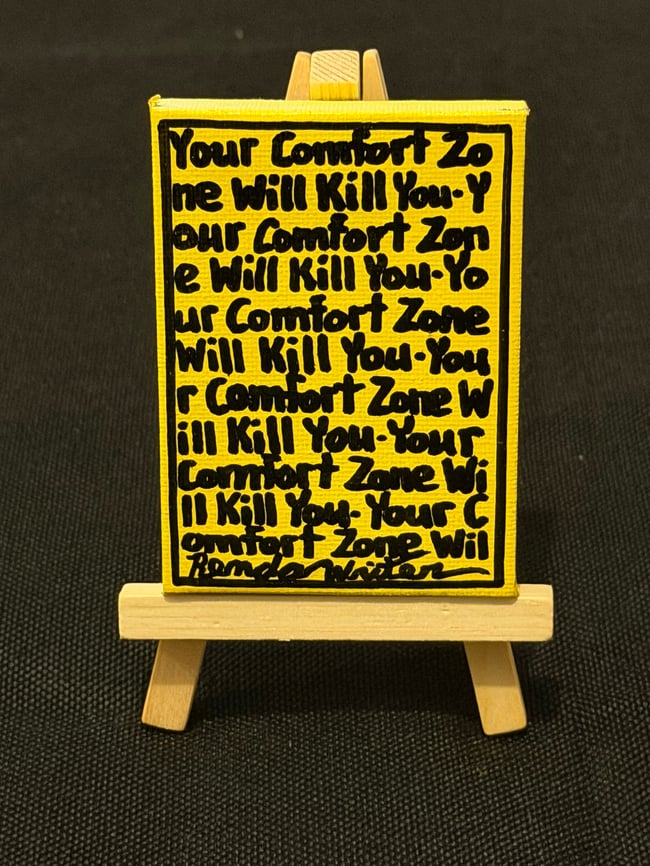 Your Comfort Zo
ne Will Kill You-Y
our Comfort Zon
e Will Kill You-Yo
ur Comfort Zone
Will Kill You-You
r Comfort Zone W
ill Kill You-Your
Comfort Zone Wi
ll Kill You-Your C
omfort Zone Wil
Renda Writer